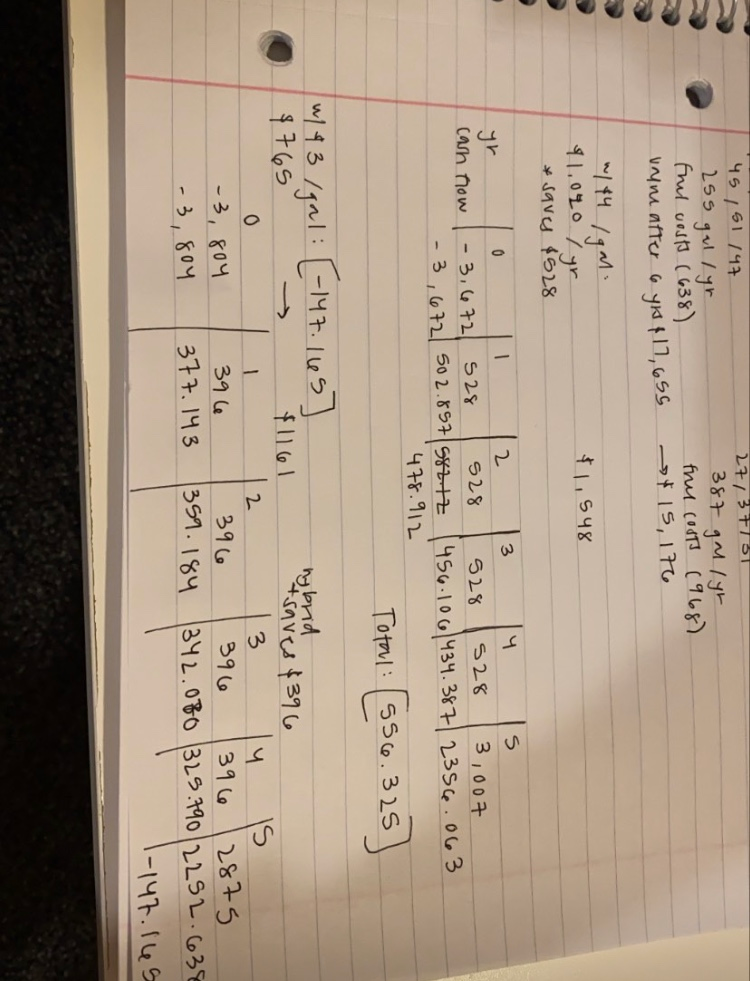 45/51/47
27/37/31
255 gal/yr
387 gal/yr
fuel costs (638)
fuel costs (968)
value after 6 yrs $17,655 → $15,176
w/ $4 /gal.
$1,020 /yr
$1,548
* saves $528
yr 0 1 2 3 4 5
cash flow -3,672 528 528 528 528 3,007
-3,672 502.857 456.106 434.387 2356.063
478.912
Total: [556.325]
w/ $3 /gal: [-147.165]
hybrid
* saves $396
$765 → $1161
0 1 2 3 4 5
-3,804 396 396 396 396 2875
-3,804 377.143 359.184 342.080 325.790 2252.638
-147.165